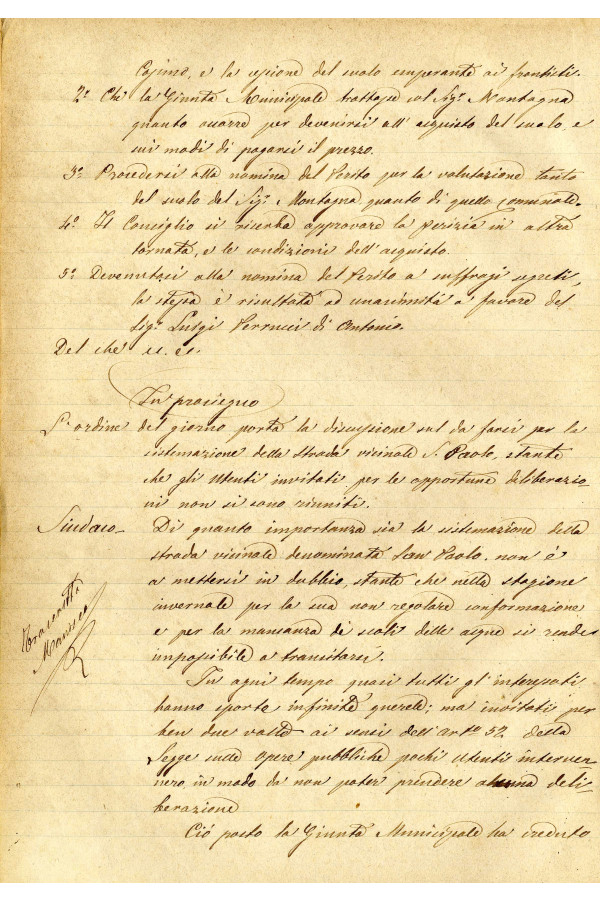 Cosimo, e la cessione del suolo emperante ai frontisti.
2.° Che la Giunta Municipale trattasse col Sig.r Montagna
quanto occorre per devenirsi all' acquisto del suolo, e
sui modi di pagarsi il prezzo.
3.° Procedersi alla nomina del Perito per la valutazione tanto
del suolo del Sig.r Montagna, quanto di quello comunale.
4.° Il Consiglio si riserba approvare la perizia in altra
tornata, e le condizioni dell' acquisto.
5.° Devenutosi alla nomina del Perito a suffragi segreti,
la stessa è risultata ad unanimità a favore del
Sig.r Luigi Verrucci di Antonio.
Del che
In prosieguo
L' ordine del giorno porta la discussione sul da farsi per la
sistemazione della strada vicinale S. Paolo, stante
che gli Utenti invitati per le opportune deliberazio
ni non si sono riuniti.
Sindaco Di quanto importanza sia la sistemazione della
strada vicinale denominata San Paolo non è
a mettersi in dubbio, stante che nella stagione
invernale per la sua non regolare conformazione
e per la mancanza de' scoli delle acque si rende
impossibile a transitarsi.
In ogni tempo quasi tutti gl' interessati
hanno sporto infinite querele; ma invitati per
ben due volte ai sensi dell' art.° 52 della
Legge sulle Opere pubbliche pochi Utenti interven
nero, in modo da non poter prendere alcuna deli-
berazione
Ciò posto la Giunta Municipale ha creduto